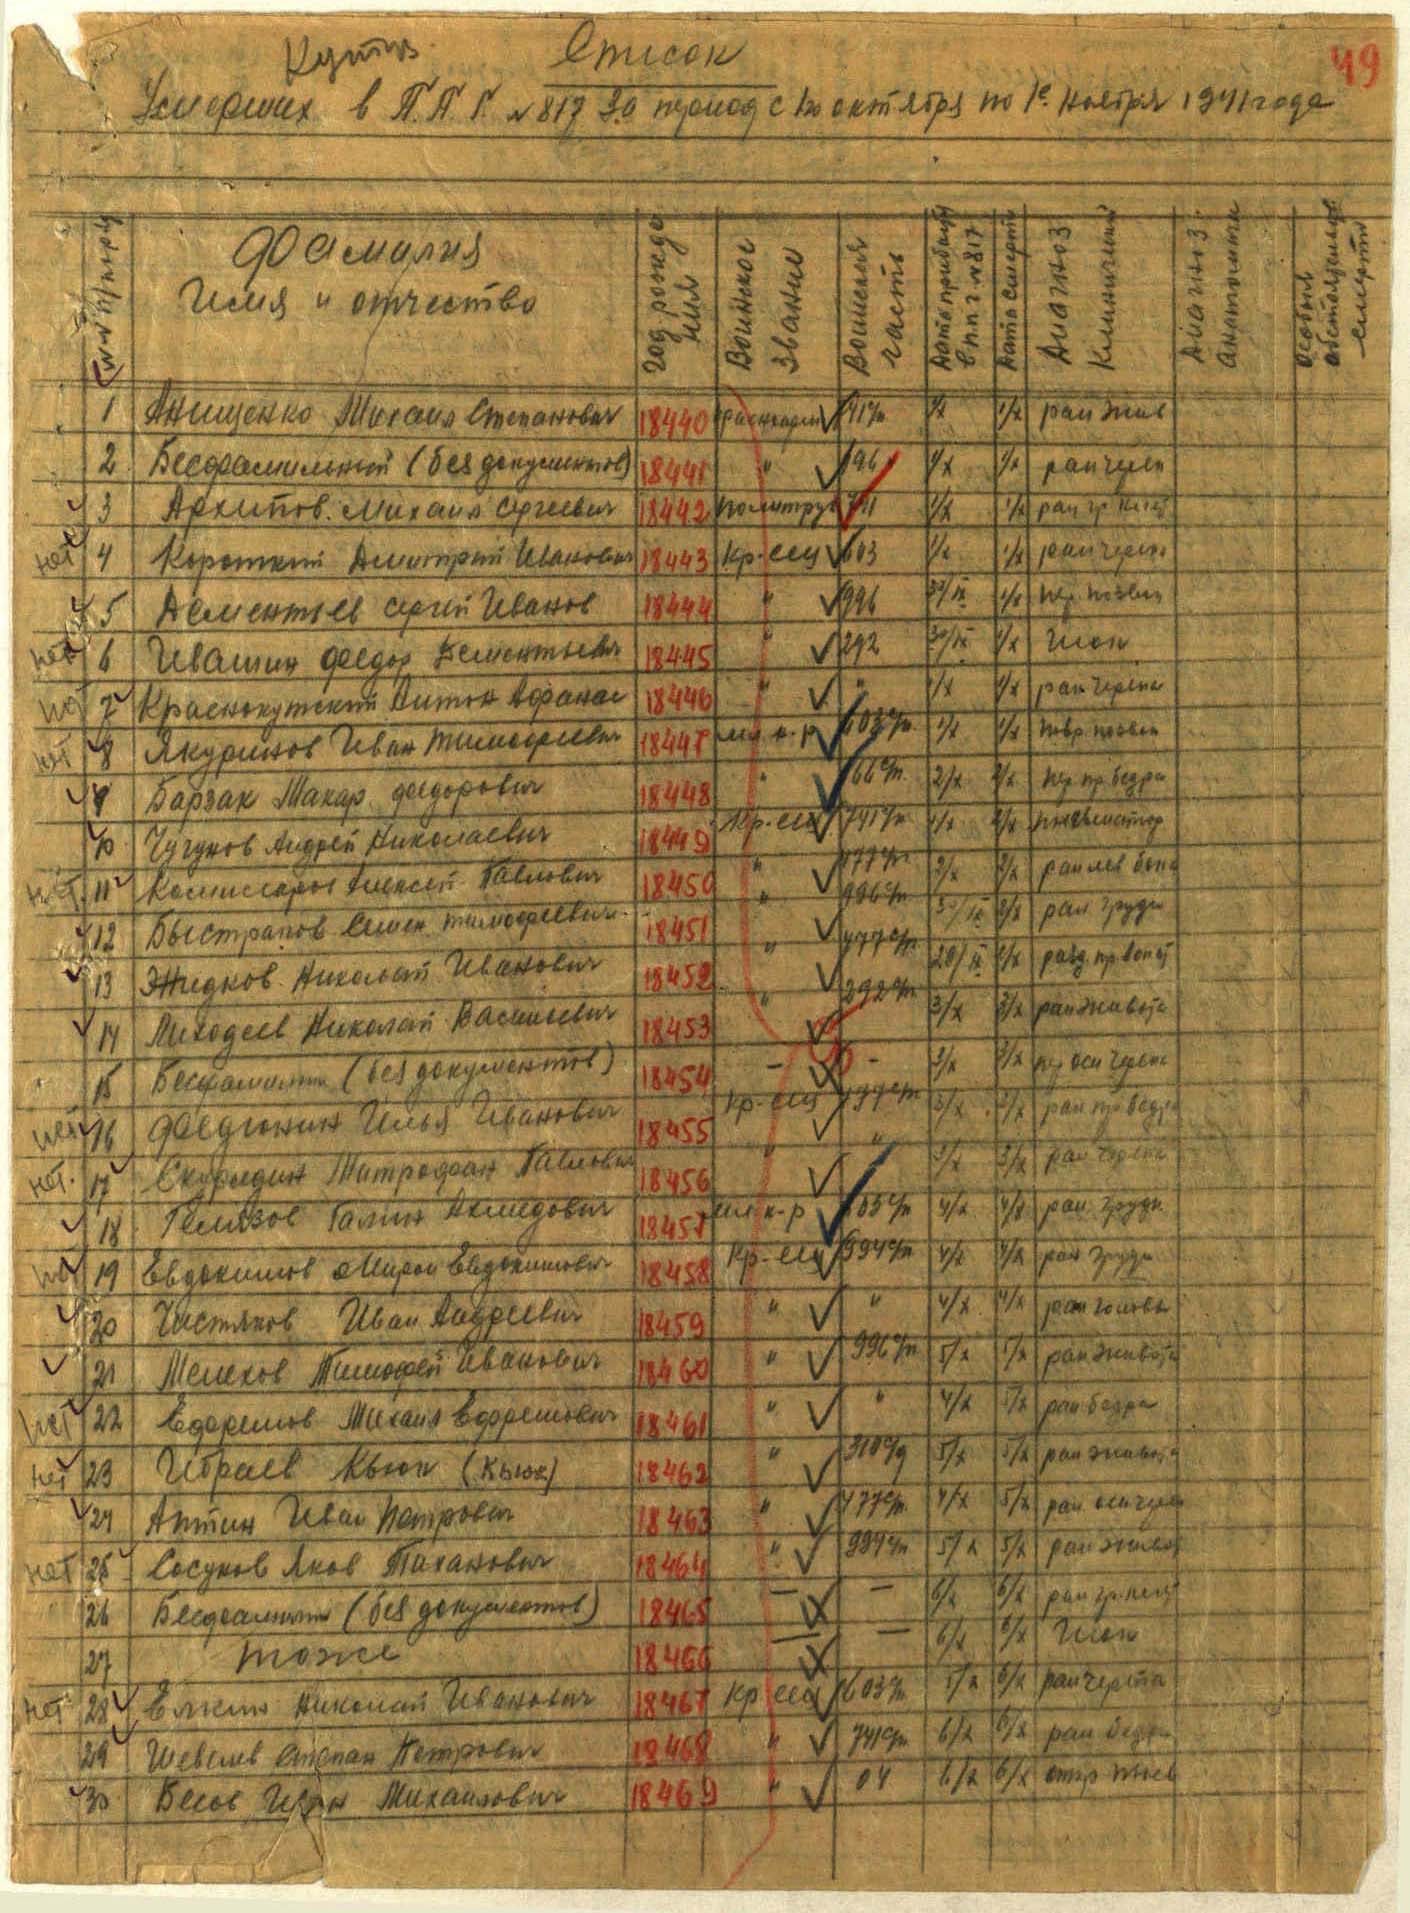 49
Список
Умерших в П.П.Г. №817 за период с 1го октября по 1е ноября 1941 года
№№ п/порд
Фамилия Имя и отчество
Год рождения
Воинское звание
Воинская часть
Дата прибыт в п.п.г. №817
Дата смерти
Диагноз клинический
Диагноз анатомич
Особые обстоятельства смерти
1 Анищенко Михаил Степанович 18440 741 сп 1/X 1/X ран жив
2 Бесфамильный (без документов) 18441 " 996 1/X 1/X ран череп
3 Архипов Михаил Сергеевич 18442 политрук 711 1/X 1/X
нет 4 Короткий Дмитрий Иванович 18443 Кр-ец 603 1/X 1/X ран черепа
5 Дементьев Сергей Иванов 18444 " 996 30/IX 1/X пер позвон
нет 6 Ивашин Федор Дементьевич 18445 " 292 30/IX 1/X Шок
7 Краснокутский Антон Афанас 18446 " " 1/X 1/X ран черепа
нет 8 Якуринов Иван Тимофеевич 18447 мл к-р 603 сп 1/X 1/X
9 Барзак Макар Федорович 18448 " 2/X 2/X пер пр бедра
10 Чугунов Андрей Николаевич 18449 Кр-ец 741 сп 1/X 2/X
нет 11 Комиссаров Алексей Павлович 18450 " 477 сп 2/X 2/X ран лев бока
12 Быстрапов Семен Тимофеевич 18451 " 996 сп 30/IX 2/X ран груди
13 Жидков Николай Иванович 18452 " 477 сп 20/IX 2/X
14 Лиходеев Николай Васильевич 18453 " 292 сп 3/X 3/X ран живота
15 Бесфамильн (без документов) 18454 — — 3/X 3/X пер осн черепа
нет 16 Федюнин Илья Иванович 18455 Кр-ец 477 сп 3/X 3/X ран пр бедра
нет. 17 Скуридин Митрофан Павлович 18456 " " 3/X 3/X ран черепа
18 Гелязов Галин Ахмедович 18457 мл к-р 603 сп 4/X 4/X ран груди
19 Евдокимов Мирон Евдокимович 18458 Кр-ец 994 сп 4/X 4/X ран груди
20 Чистяков Иван Андреевич 18459 " " 4/X 4/X ран головы
21 Мелехов Тимофей Иванович 18460 " 996 сп 5/X 5/X ран живота
нет 22 Ефремов Михаил Ефремович 18461 " " 4/X 5/X ран бедра
нет 23 Ибраев Кьюк (Кьюк) 18462 " 5/X 5/X ран живота
24 Аптин Иван Петрович 18463 " 477 сп 4/X 5/X ран осн череп
нет 25 Сосунов Яков Тиханович 18464 " 994 сп 5/X 5/X ран живот
26 Бесфамильн (без документов) 18465 — — 6/X 6/X
27 тоже 18466 — — 6/X 6/X Шок
нет 28 Елкин Николай Иванович 18467 Кр-ец 603 сп 5/X 6/X ран черепа
29 Шевелев Степан Петрович 18468 " 741 сп 6/X 6/X ран бедра
30 Бесов Иван Михайлович 18469 " 04 6/X 6/X